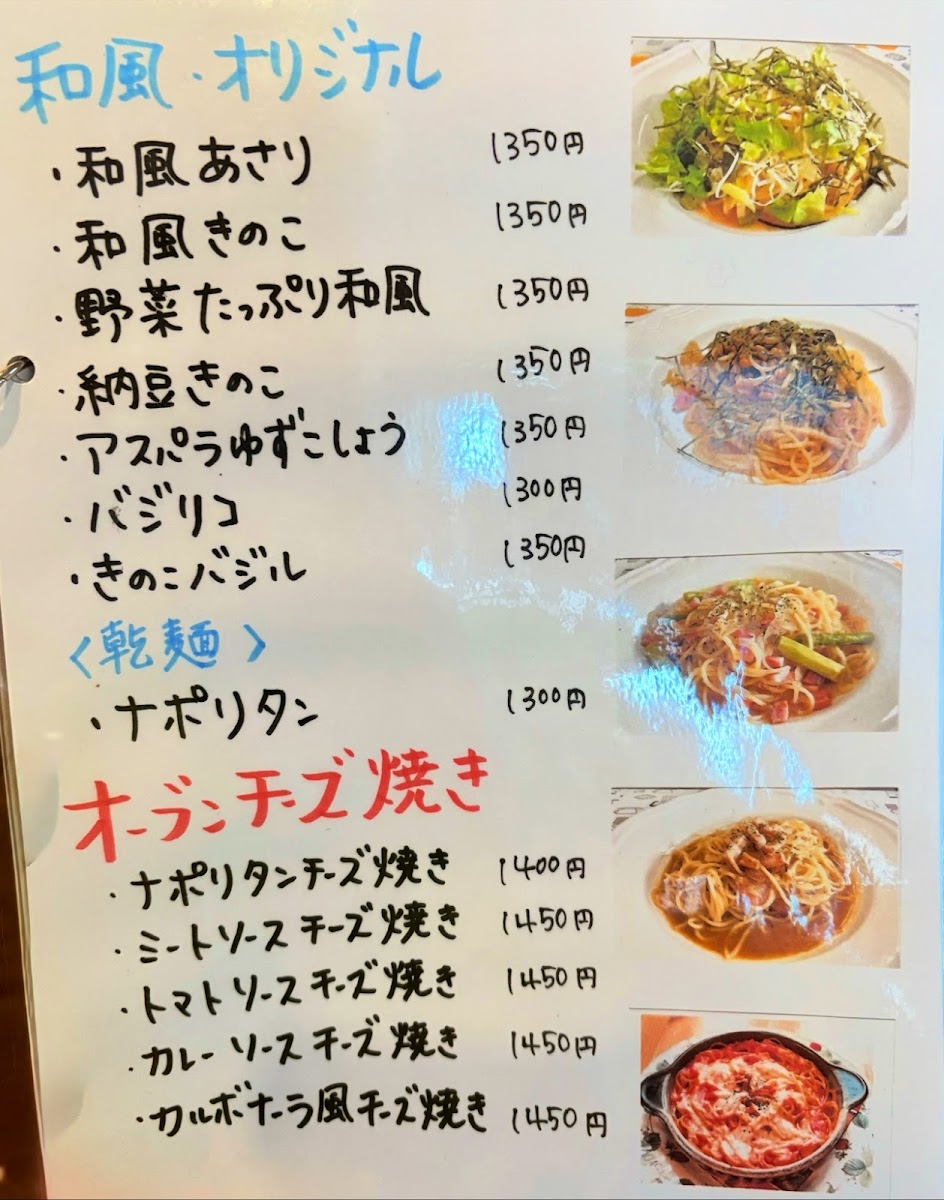 和風・オリジナル
・和風あさり 1350円
・和風きのこ 1350円
・野菜たっぷり和風 1350円
・納豆きのこ 1350円
・アスパラゆずこしょう 1350円
・バジリコ 1300円
・きのこバジル 1350円
〈乾麺〉
・ナポリタン 1300円
オーブンチーズ焼き
・ナポリタンチーズ焼き 1400円
・ミートソースチーズ焼き 1450円
・トマトソースチーズ焼き 1450円
・カレーソースチーズ焼き 1450円
・カルボナーラ風チーズ焼き 1450円